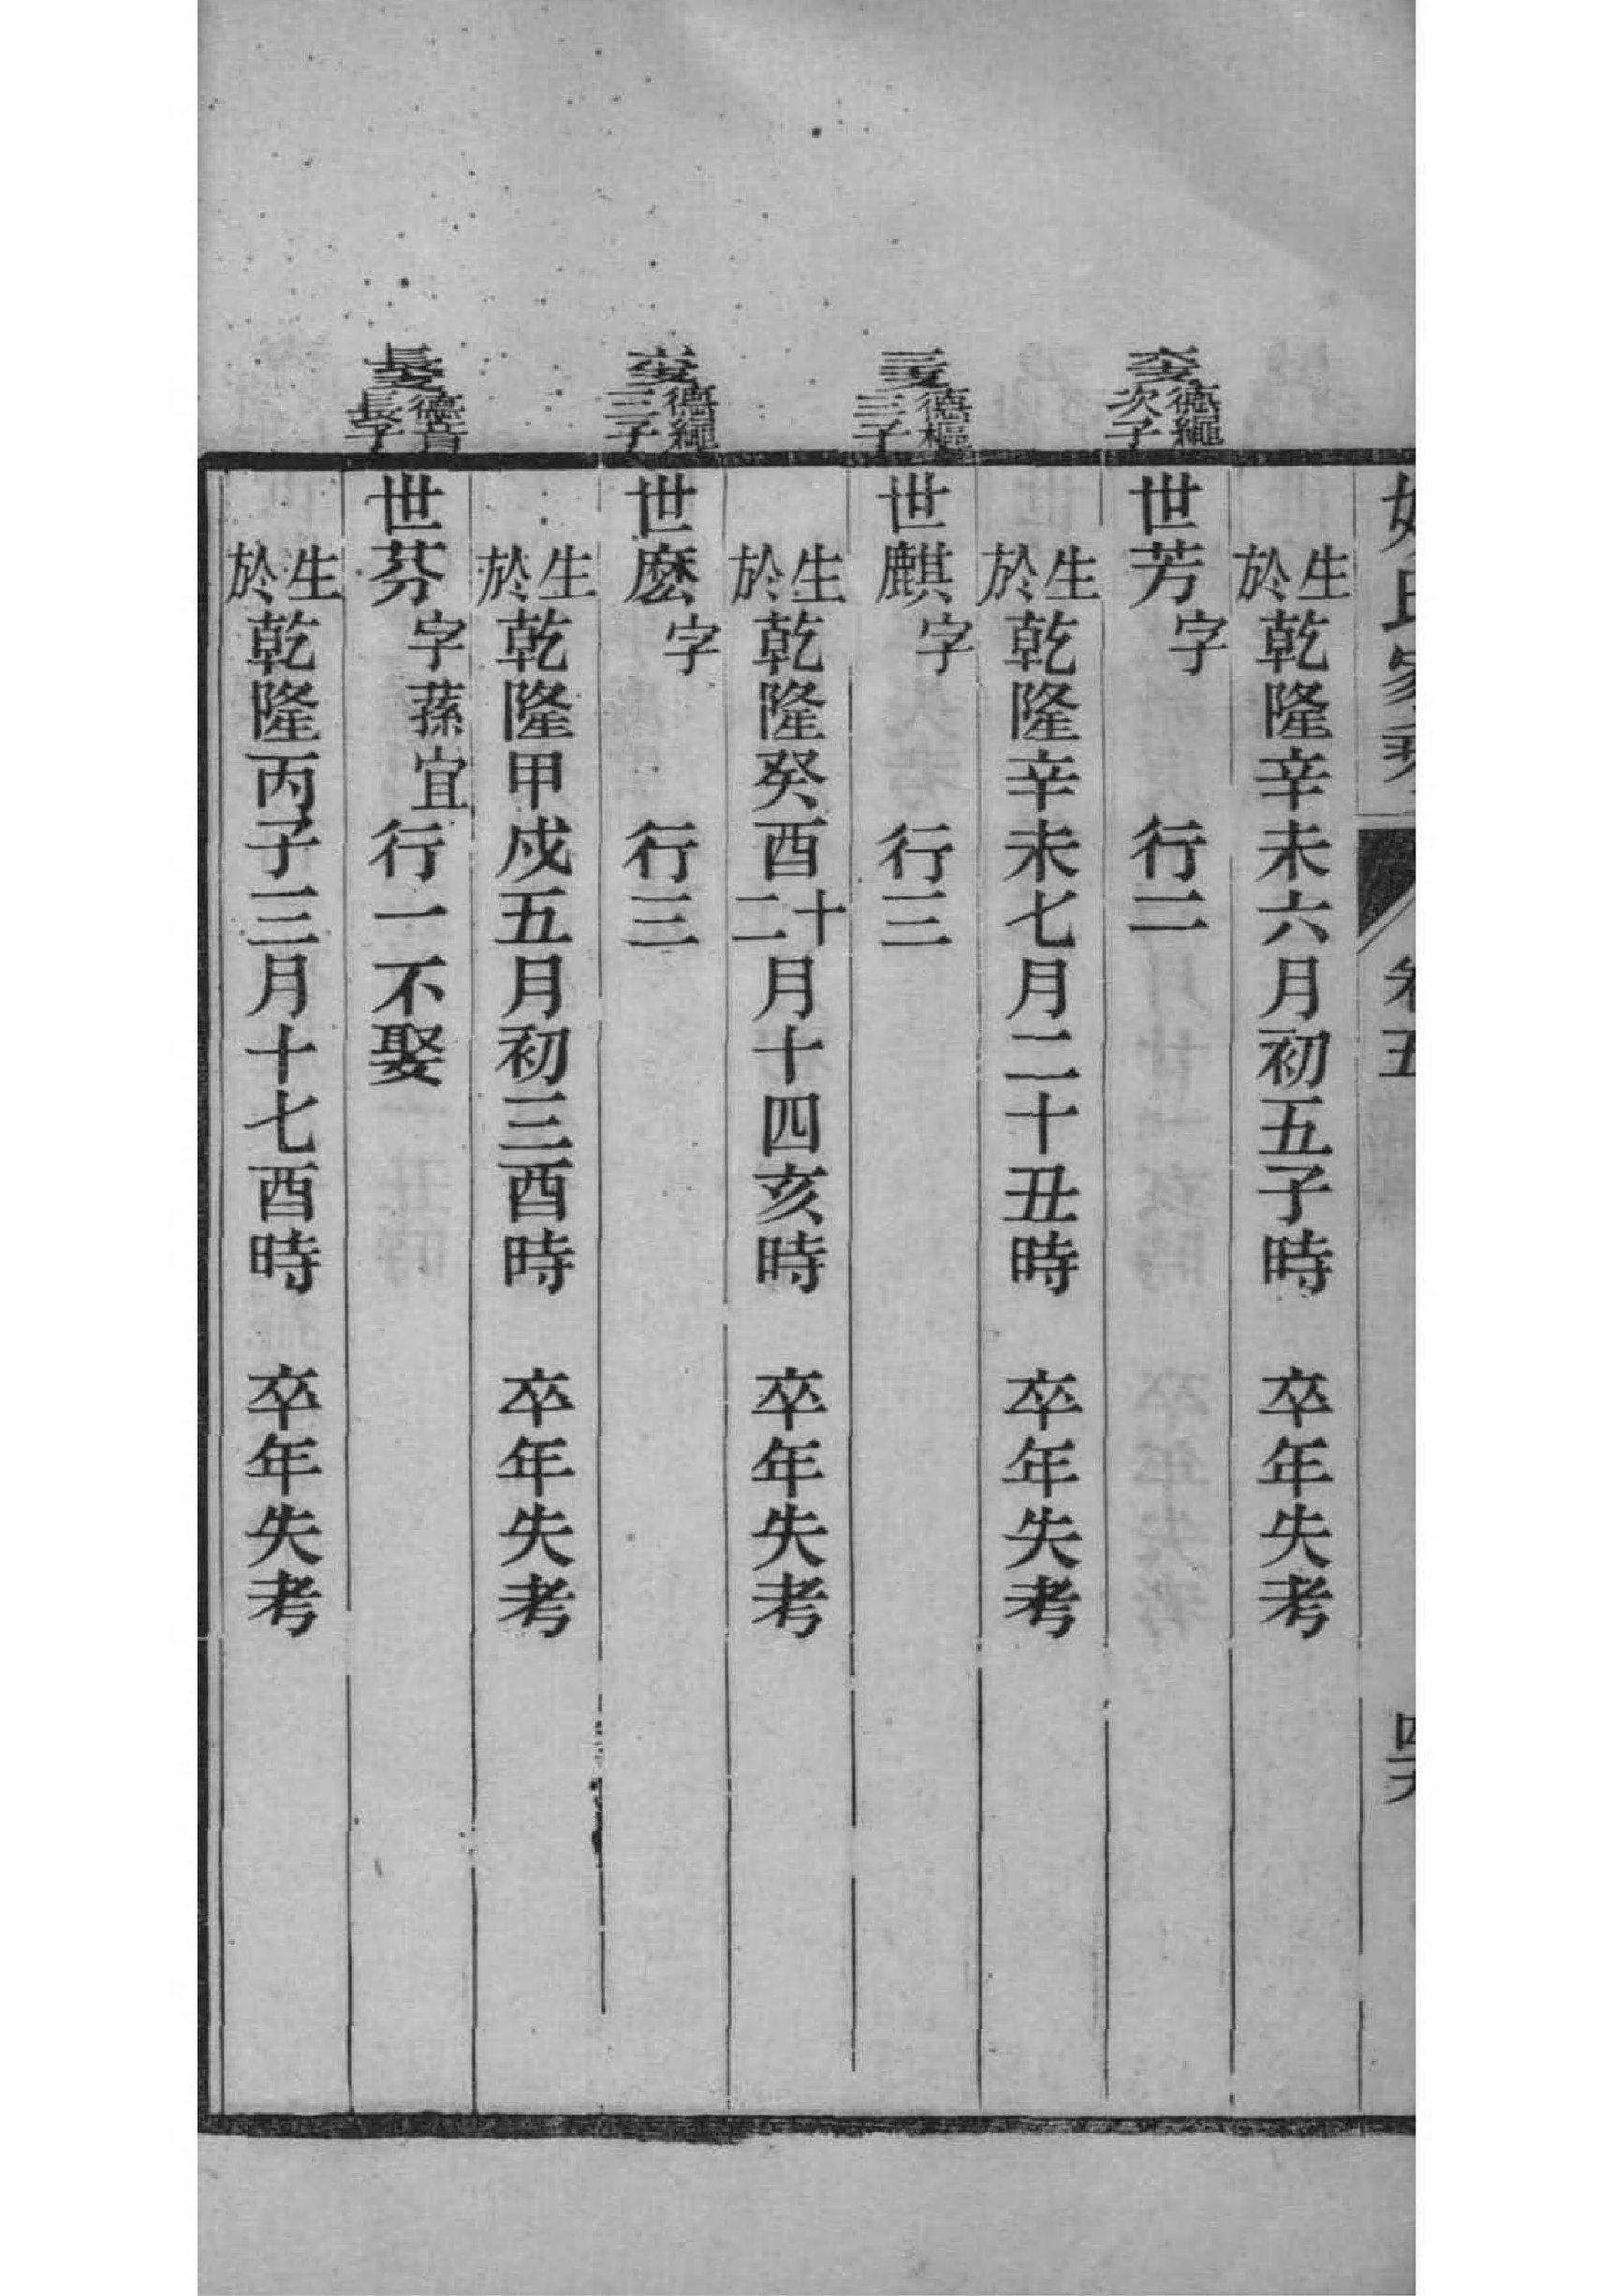 卷五
生於乾隆辛未六月初五子時 卒年失考
六支德繩次子
世芳字 行二
生於乾隆辛未七月二十丑時 卒年失考
三支德樞三子
世麒字 行三
生於乾隆癸酉十二月十四亥時 卒年失考
六支德繩三子
世麽字 行三
生於乾隆甲戌五月初三酉時 卒年失考
長支德音長子
世芬字蓀宜行一不娶
生於乾隆丙子三月十七酉時 卒年失考